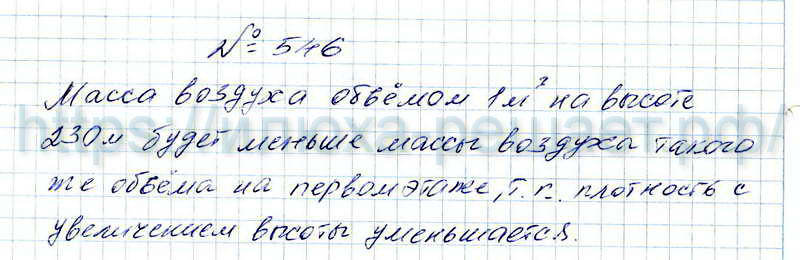 № 546
Масса воздуха объёмом 1м³ на высоте
230м будет меньше массы воздуха такого
же объёма на первом этаже, т.к. плотность с
увеличением высоты уменьшается.